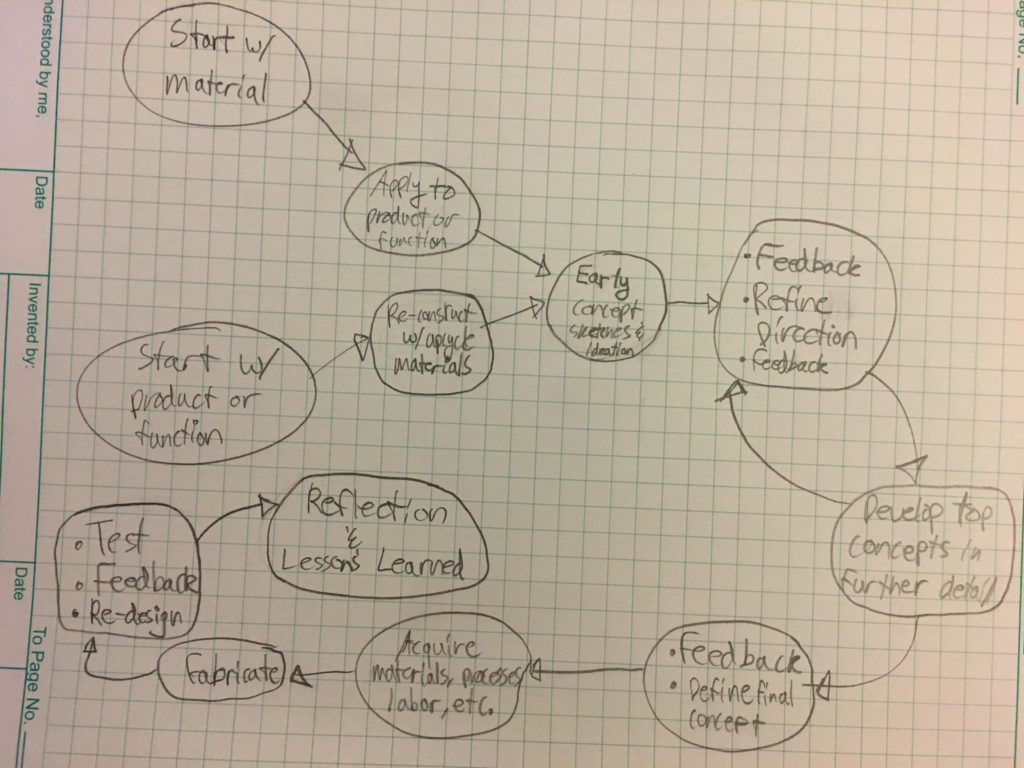 Start w/
material
Apply to
product or
function
Start w/
product or
function
Re-constuct
w/upcycle
materials
Early
concept
sketches &
ideation
• Feedback
• Refine
Direction
• Feedback
Develop top
concepts in
further detail
• Feedback
• Define final
concept
Acquire
materials, processes
labor, etc.
Fabricate
• Test
• Feedback
• Re-design
Reflection
&
Lessons Learned
nderstood by me,
Date
Invented by:
Date
To Page No.
age No.